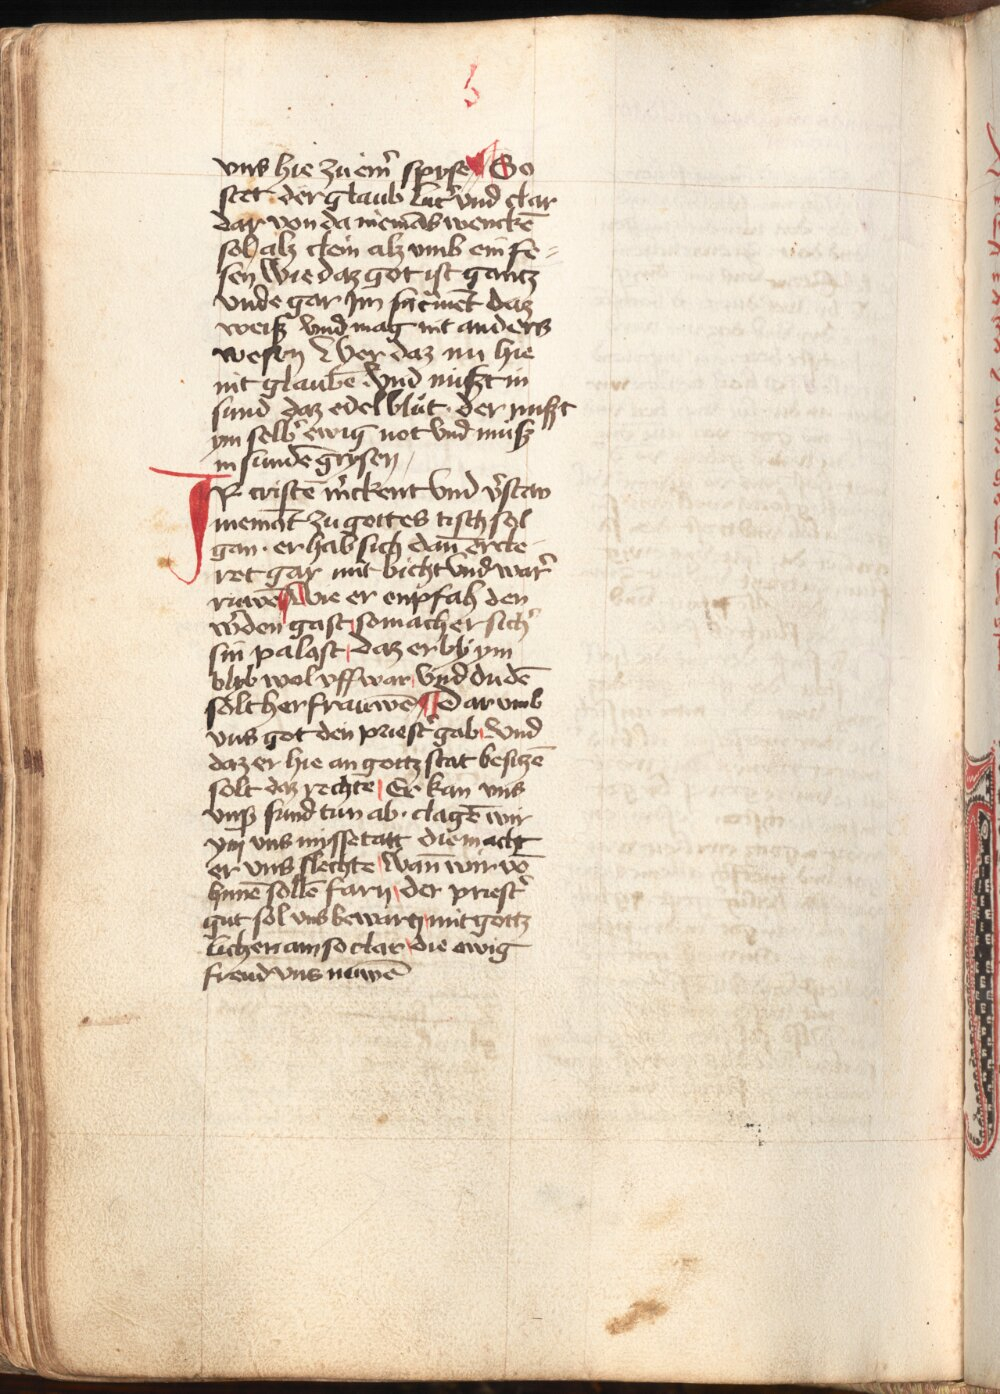 vns hie zu eim̄ spyse So
stet der glaub lut̄ vnd clar
dar von da niemās wenckē
sol alz clein alz vmb ein fe=
sen Wie daz got ist gantz
vnde gar Im sacmēt daz
weiß vnd mag nit anders
wesen Wer daz nu hie
nit glaubē vnd nüßt in
sund daz edel blüt · der nüßt
ym selb̄ ewig not vnd müß
in sundē grysen
IR cristē m̄ckent vnd v̄stan
niemāt zu gottes tisch sol
gan · er hab sich dan̄ ercle
ret gar mit bicht vnd war̄
ruwē Wie er enpfah den
w̄den gast so mach er sich̄
sin palast daz er by ym
blyb wol vff war vnd dudē
solt her frauwē Dar vmb
vns got den priest̄ gab vnd
daz er hie an gottz stat besitzē
solt daz rechtē Er kan vns
vnß sund tun ab · clagē wir
ym vns myssetatt die macht
er vns slechte Wan̄ wir vō
hinnē sollē farn der priest̄
gut sol vns bewarn mit gottz
lichenam so clar die ewig
freud vns nuwē